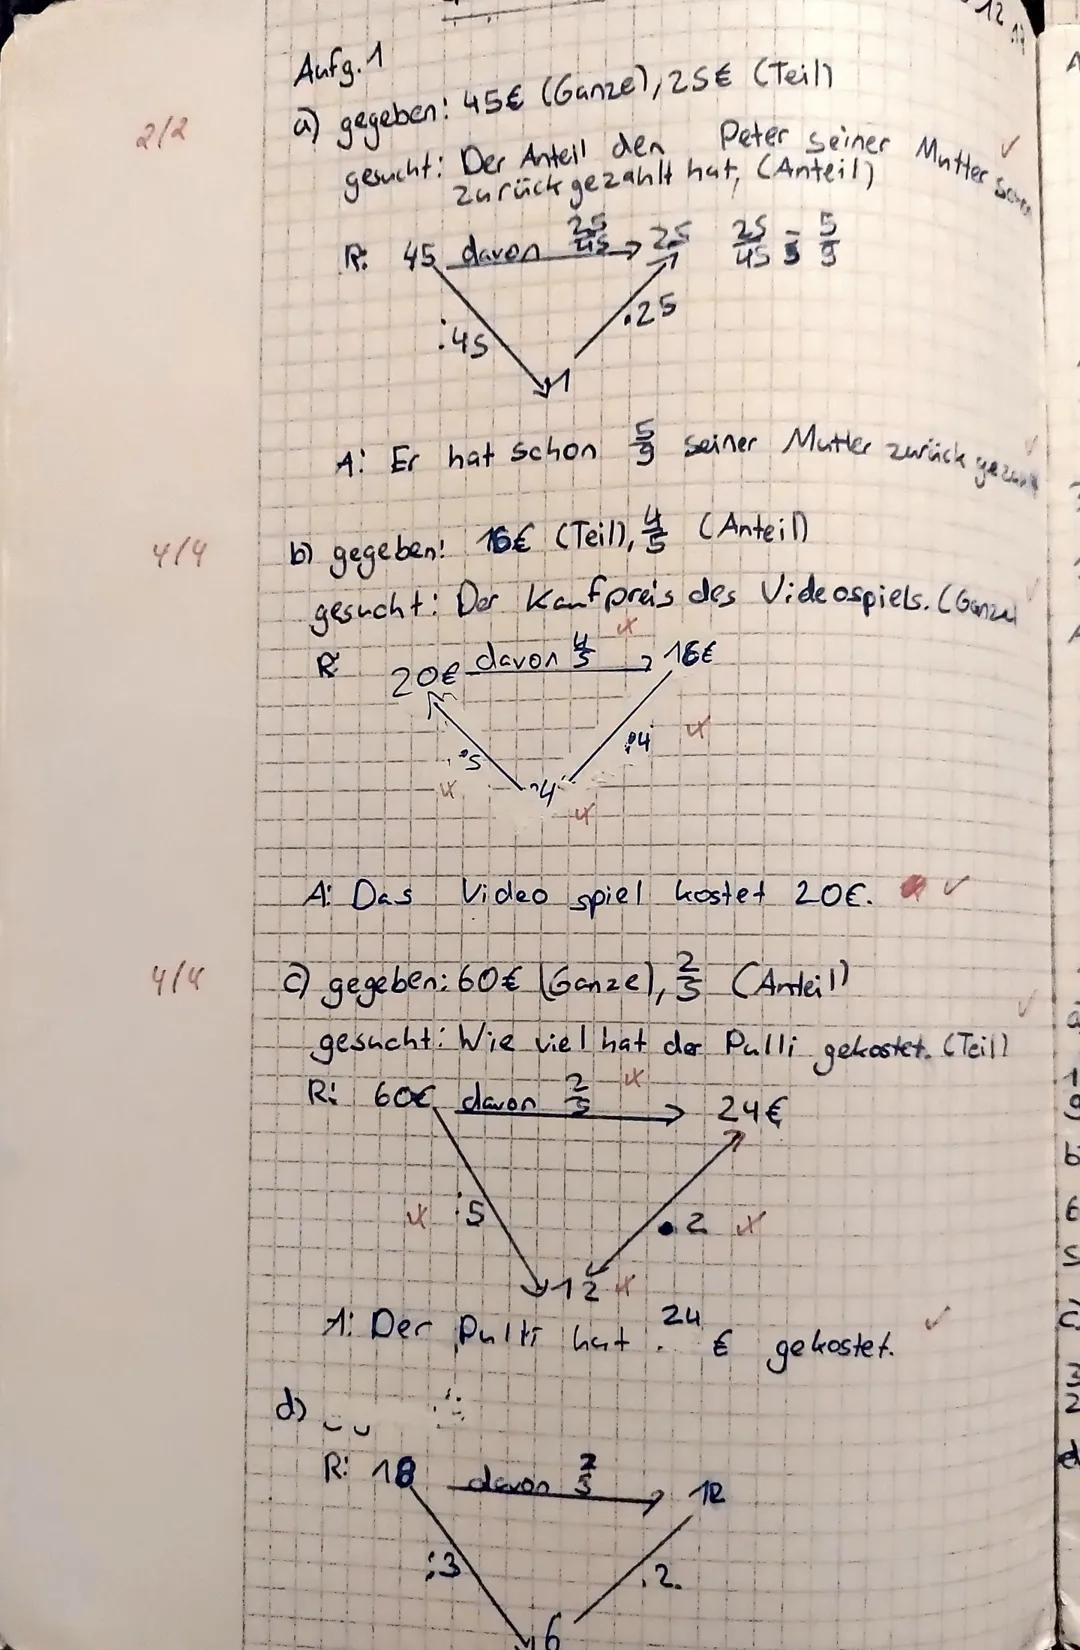 12
14
Aufg. 1
2/2
a) gegeben: 45€ (Ganze), 25€ (Teil)
gesucht: Der Anteil den Peter seiner Mutter schon
zurückgezahlt hat, (Anteil)
R: 45 davon 25/45 25 25/45 = 5/9
:45 ·25
1
A: Er hat schon 5/9 seiner Mutter zurück gezahlt
4/4
b) gegeben: 16€ (Teil), 4/5 (Anteil)
gesucht: Der Kaufpreis des Videospiels. (Ganze)
R: 20€ davon 4/5 16€
·5 :4
4
A: Das Video spiel kostet 20€.
4/4
c) gegeben: 60€ (Ganze), 2/5 (Anteil)
gesucht: Wie viel hat der Pulli gekostet. (Teil)
R: 60€ davon 2/5 24€
:5 ·2
12
A: Der Pulli hat 24 € gekostet.
d)
R: 18 davon 2/3 12
:3 ·2
6